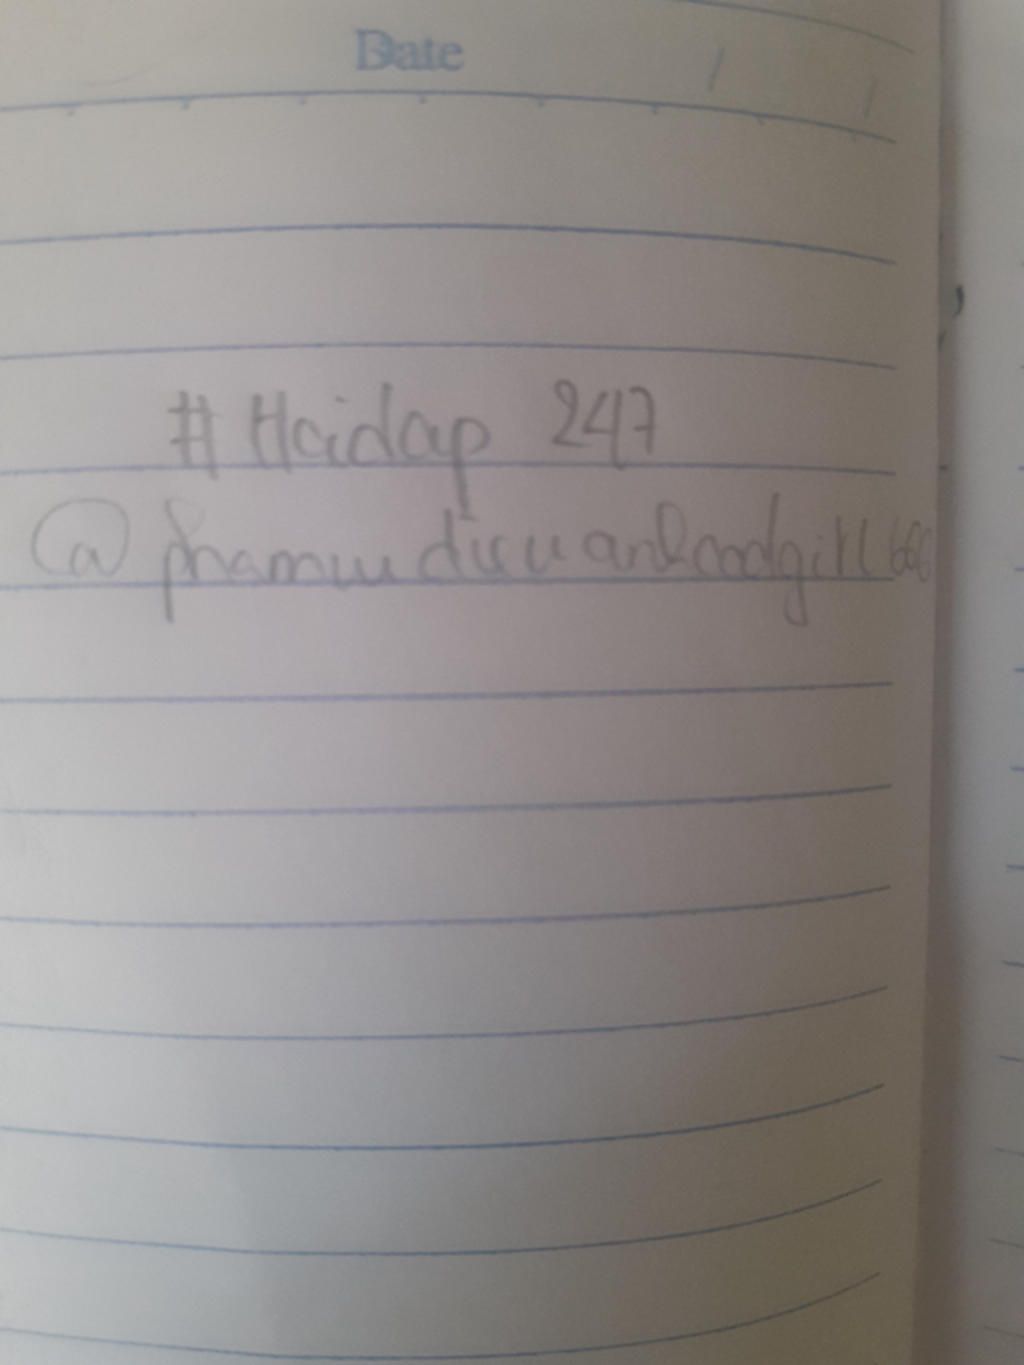 Date / /
#Hoidap 247
@phamvudieuanhcoolgirl666